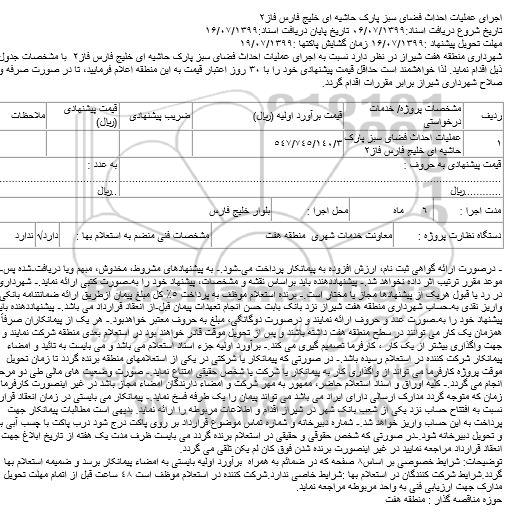 اجرای عملیات احداث فضای سبز پارک حاشیه ای خلیج فارس فاز۲
تاریخ شروع دریافت اسناد:۰۶/۰۷/۱۳۹۹ تاریخ پایان دریافت اسناد:۱۶/۰۷/۱۳۹۹
مهلت تحویل پیشنهاد :۱۶/۰۷/۱۳۹۹ زمان گشایش پاکتها :۱۹/۰۷/۱۳۹۹
شهرداری منطقه هفت شیراز در نظر دارد نسبت به اجرای عملیات احداث فضای سبز پارک حاشیه ای خلیج فارس فاز۲ با مشخصات جدول
ذیل اقدام نماید. لذا خواهشمند است حداقل قیمت پیشنهادی خود را با ۳۰ روز اعتبار قیمت به این منطقه اعلام فرمایید، تا در صورت صرفه و
صلاح شهرداری شیراز برابر مقررات اقدام گردد.
ردیف مشخصات پروژه/ خدمات درخواستی قیمت برآورد اولیه (ریال) ضریب پیشنهادی قیمت پیشنهادی (ریال) ملاحظات
۱ عملیات احداث فضای سبز پارک حاشیه ای خلیج فارس فاز۲ ۵۴۷/۷۴۵/۱۴۰/۳
قیمت پیشنهادی به حروف : به عدد :
............ریال ..ریال
مدت اجرا : ۶ ماه محل اجرا : بلوار خلیج فارس
دستگاه نظارت پروژه : معاونت خدمات شهری منطقه هفت مشخصات فنی منضم به استعلام بها : دارد/۹ ندارد
ـ درصورت ارائه گواهی ثبت نام، ارزش افزوده به پیمانکار پرداخت می‌شود.ـ به پیشنهادهای مشروط، مخدوش، مبهم ویا دریافت‌شده پس‌از
موعد مقرر ترتیب اثر داده نخواهد شد.ـ پیشنهاددهنده باید براساس نقشه و مشخصات، پیشنهاد خود را به‌صورت کتبی ارائه نماید.ـ شهرداری
در رد یا قبول هریک از پیشنهادها مجاز یا مختار است.ـ برنده استعلام موظف به پرداخت ۵٪ کل مبلغ پیمان ازطریق ارائه ضمانتنامه بانکی یا
واریز نقدی به‌حساب شهرداری منطقه هفت شیراز نزد بانک بابت حسن انجام تعهدات پیمان قبل‌از انعقاد قرارداد می باشد.ـ پیشنهاددهنده باید
پیشنهاد خود را به‌صورت عدد و حروف ارائه نمایند و درصورت دوگانگی، مبلغ به حروف معتبر خواهدبود.ـ هر یک از پیمانکاران صرفاً
همزمان یک کار می توانند در سطح منطقه هفت داشته باشند و پس از تحویل موقت قادر خواهند بود در استعلام بعدی منطقه شرکت نمایند و
جهت واگذاری بیشتر از یک کار ، کارفرما تصمیم گیری می کند.ـ برآورد اولیه جزء اسناد استعلام می باشد و می بایست به تائید و امضاء
پیمانکار شرکت کننده در استعلام رسیده باشد.ـ در صورتی که پیمانکار یا شرکتی در یکی از استعلامهای منطقه برنده گردد تا زمان تحویل
موقت پروژه کارفرما می تواند از واگذاری کار به پیمانکار یا شرکت یا شخص حقیقی امتناع نماید.ـ صورت وضعیت های مالی طی دو مرحله
انجام می گردد.ـ کلیه اوراق و اسناد استعلام حاضر، ممهور به مهر شرکت و امضاء دارندگان امضاء مجاز باشد در غیر اینصورت کارفرما هر
زمان که متوجه گردد مدارک ارسالی دارای ایراد می باشد می تواند پیمان را یک طرفه فسخ نماید.ـ پیمانکار می بایستی در زمان انعقاد قرارداد
نسبت به افتتاح حساب نزد یکی از شعب بانک شهر در شیراز اقدام و اطلاعات مربوطه را ارائه نماید. بدیهی است مطالبات پیمانکار جهت
پرداخت به این حساب واریز خواهد شد.ـ شماره دبیرخانه و شماره تماس موضوع قرارداد بر روی پاکت درج شود درب پاکت با چسب آبی بسته
و تحویل دبیرخانه شود.ـدر صورتی که شخص حقوقی و حقیقی در استعلام برنده گردد می بایست ظرف مدت یک هفته از تاریخ ابلاغ جهت
انعقاد قرارداد مراجعه نمایید در غیر اینصورت برنده شدن فوق کان لم یکن تلقی می گردد.
توضیحات: شرایط خصوصی بر اساس۸ صفحه که در ضمائم به همراه برآورد اولیه بایستی به امضاء پیمانکار برسد و ضمیمه استعلام بها
گردد.شرایط شرکت کنندگان در استعلام بها :شرایط خاصی ندارد.شرکت کننده در استعلام موظف است ۴۸ ساعت قبل از اتمام مهلت تحویل
مدارک جهت ارزیابی فنی به واحد مربوطه مراجعه نماید.
حوزه مناقصه گذار : منطقه هفت